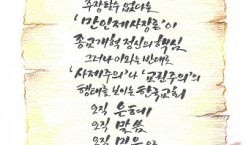 주장할 수 없다는
'만인제사장론'이
종교개혁 정신의 핵심
그러나 이와는 반대로
'사제주의'나 '교권주의'의
행태를 보이는 한국교회
오직 은혜
오직 말씀
오직 믿음으로